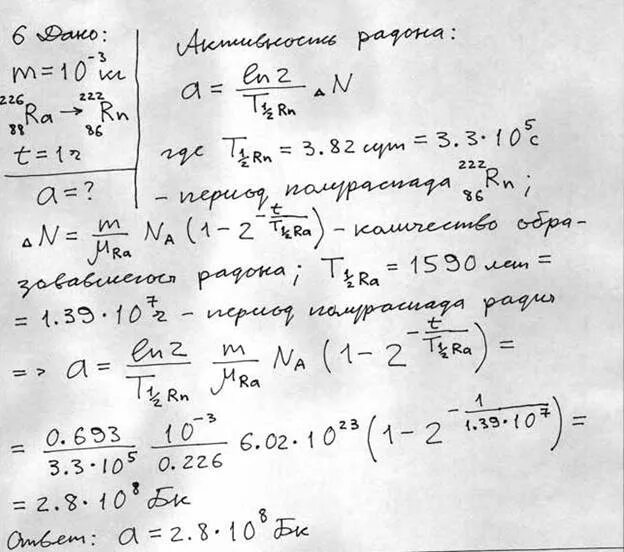 6 Дано:
m = 10⁻³ кг
²²⁶₈₈Ra → ²²²₈₆Rn
t = 1 ч
a = ?
Активность радона:
a = ln 2 / T½ Rn ΔN
где T½ Rn = 3.82 сут = 3.3·10⁵ с
– период полураспада ²²²₈₆Rn;
ΔN = m/μRa NA (1 – 2^(–t/T½ Ra)) – количество обра-
зовавшегося радона; T½ Ra = 1590 лет =
= 1.39·10⁷ ч – период полураспада радия
=> a = ln 2 / T½ Rn m/μRa NA (1 – 2^(–t/T½ Ra)) =
= 0.693/3.3·10⁵ 10⁻³/0.226 6.02·10²³ (1 – 2^(–1/1.39·10⁷)) =
= 2.8·10⁸ Бк
Ответ: a = 2.8·10⁸ Бк